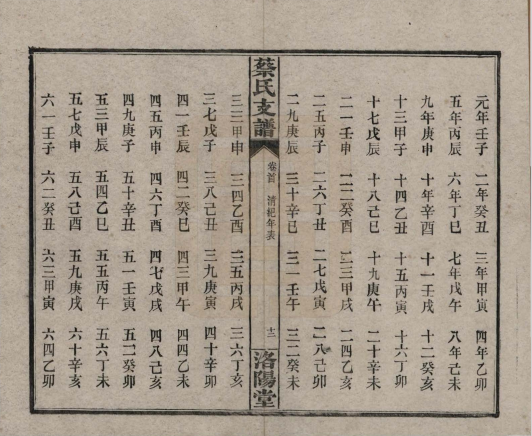 元年壬子 二年癸丑 三年甲寅 四年乙卯
五年丙辰 六年丁巳 七年戊午 八年己未
九年庚申 十年辛酉 十一壬戌 十二癸亥
十三甲子 十四乙丑 十五丙寅 十六丁卯
十七戊辰 十八己巳 十九庚午 二十辛未
二一壬申 二二癸酉 二三甲戌 二四乙亥
二五丙子 二六丁丑 二七戊寅 二八己卯
二九庚辰 三十辛巳 三一壬午 三二癸未
蔡氏支譜 卷首 清紀年表 十二 洛陽堂
三三甲申 三四乙酉 三五丙戌 三六丁亥
三七戊子 三八己丑 三九庚寅 四十辛卯
四一壬辰 四二癸巳 四三甲午 四四乙未
四五丙申 四六丁酉 四七戊戌 四八己亥
四九庚子 五十辛丑 五一壬寅 五二癸卯
五三甲辰 五四乙巳 五五丙午 五六丁未
五七戊申 五八己酉 五九庚戌 六十辛亥
六一壬子 六二癸丑 六三甲寅 六四乙卯